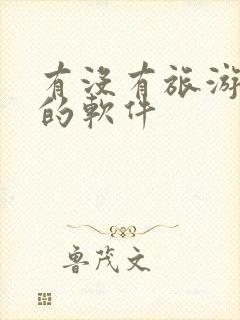 有没有旅游
的軟件
鲁茂文